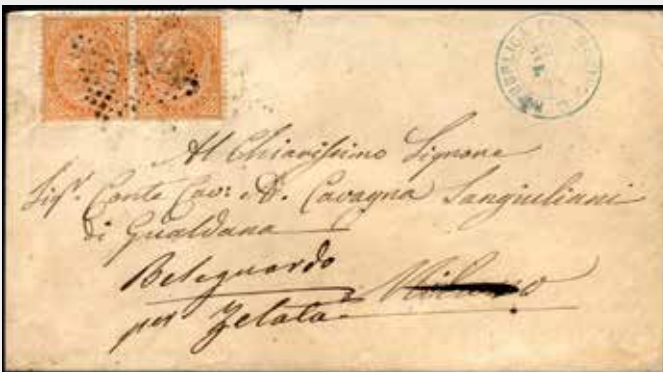 REPUBBLICA
Al Chiarissimo Signore
Sigr. Conte Cavr. D. Cavagna Sangiuliani
di Gualdana
Bereguardo
per Zelata Milano